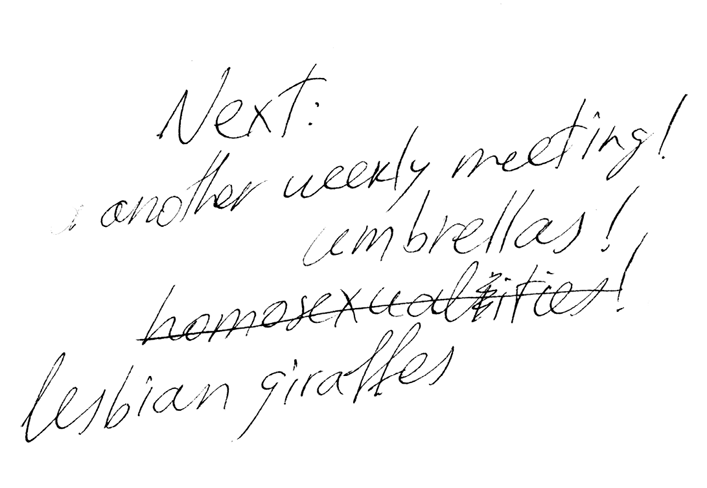 Next:
another weekly meeting!
umbrellas!
homosexualities!
lesbian giraffes